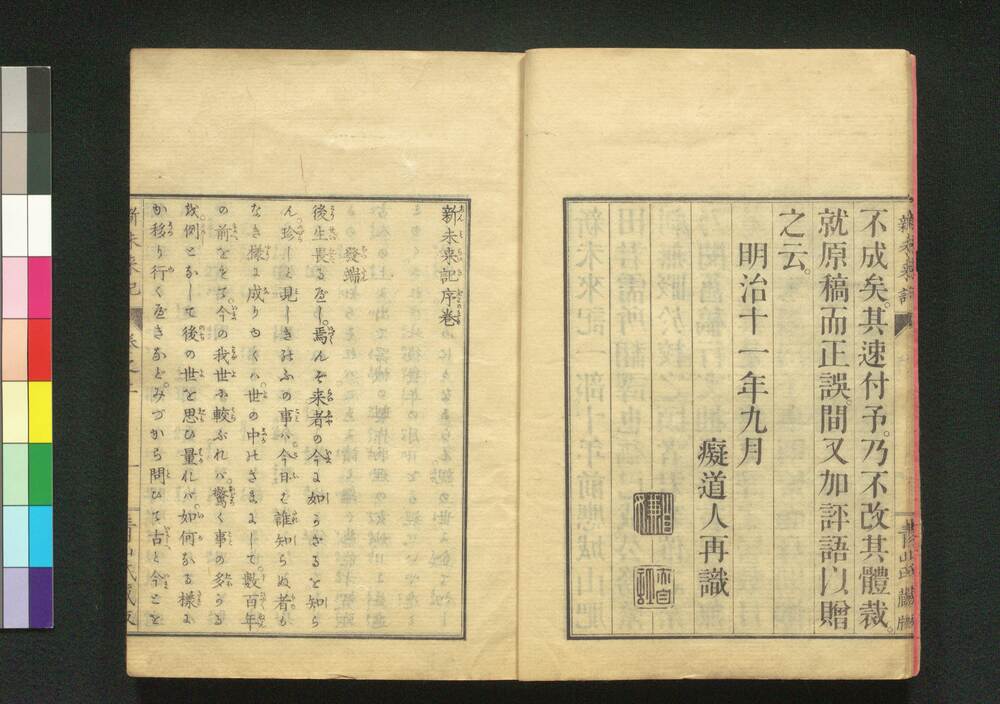 不成矣。其速付予。乃不改其體裁。
就原稿而正誤。間又加評語以贈
之云。
明治十一年九月
癡道人再識
新未来記序巻
發端
後生畏る應し。焉んぞ来者の今に如うざるを知ら
ん。珍しと現しきけふの事ハ今日を誰知らぬ者も
なき様に成りゆくハ世の中のさまにして數百年
の前をもて。今の我世に較ぶれバ。驚く事の多うる
を例となして後の世を思ひ量れバ。如何なる様に
か移り行く應きなど。みづから問ひて古と今とを
新未来記